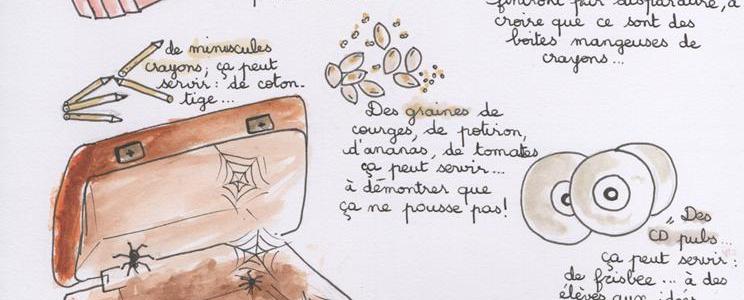 finiront par disparaître, à
croire que ce sont des
boites mangeuses de
crayons...
de minuscules
crayons, ça peut
servir : de coton-
tige...
Des graines de
courges, de potiron,
d'ananas, de tomates
ça peut servir...
à démontrer que
ça ne pousse pas!
Des
CD pubs...
ça peut servir :
de frisbee... à des
élèves aux idées